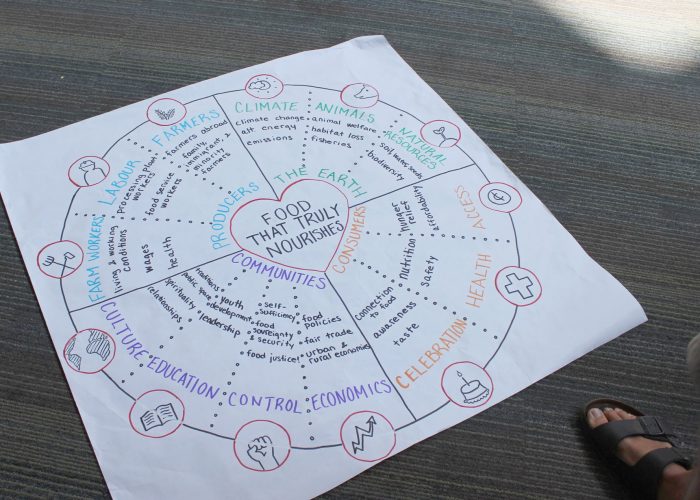 FOOD
THAT TRULY
NOURISHES
THE EARTH
CLIMATE
climate change
alt energy
emissions
ANIMALS
animal welfare
habitat loss
fisheries
NATURAL
RESOURCES
biodiversity
CONSUMERS
ACCESS
hunger
relief
affordability
HEALTH
nutrition
safety
CELEBRATION
connection
to food
awareness
taste
COMMUNITIES
ECONOMICS
food
policies
fair trade
urban &
rural economies
CONTROL
self-
sufficiency
food
sovereignty
& security
food justice!
EDUCATION
youth
development
leadership
CULTURE
traditions
public space
spirituality
relationships
PRODUCERS
FARM WORKERS
living & working
conditions
wages
health
LABOUR
processing plant
workers
food service
workers
FARMERS
farmers abroad
family,
immigrant, &
minority
farmers